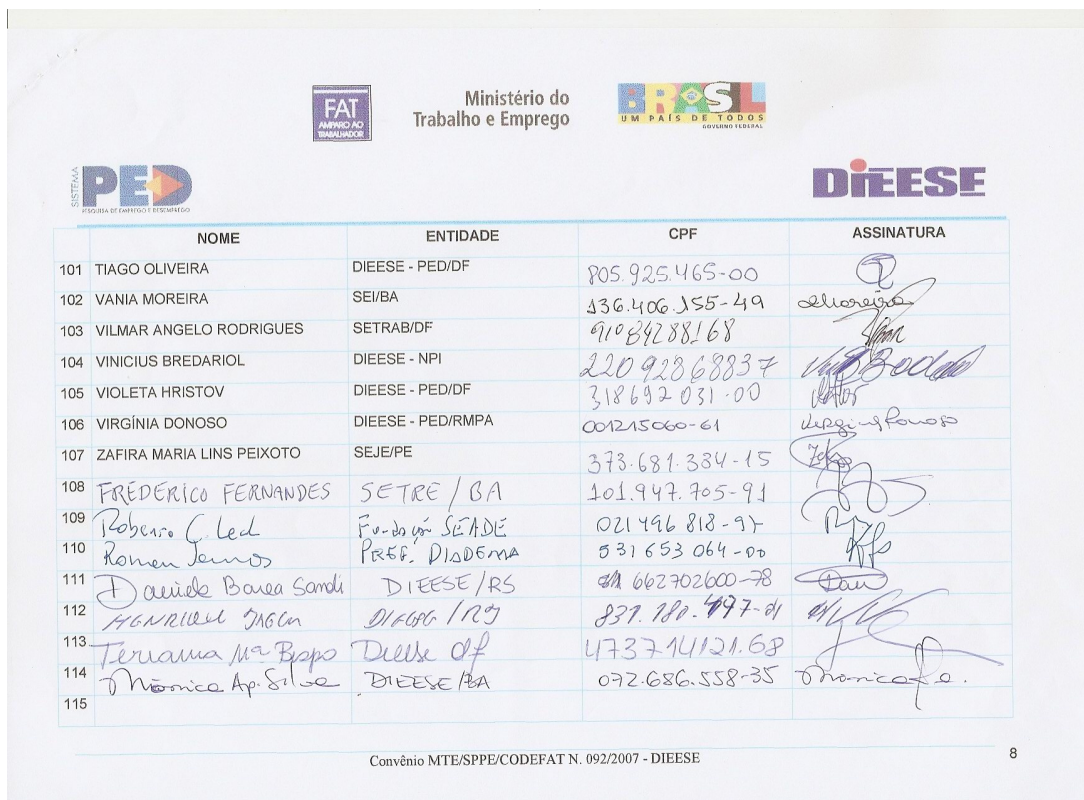 FAT
AMPARO AO
TRABALHADOR
Ministério do
Trabalho e Emprego
BRASIL
UM PAÍS DE TODOS
GOVERNO FEDERAL
SISTEMA
PED
PESQUISA DE EMPREGO E DESEMPREGO
DIEESE
NOME ENTIDADE CPF ASSINATURA
101 TIAGO OLIVEIRA DIEESE - PED/DF 805.925.465-00
102 VANIA MOREIRA SEI/BA 136.406.155-49
103 VILMAR ANGELO RODRIGUES SETRAB/DF 91084288168
104 VINICIUS BREDARIOL DIEESE - NPI 22092868837
105 VIOLETA HRISTOV DIEESE - PED/DF 318692031-00
106 VIRGÍNIA DONOSO DIEESE - PED/RMPA 001215060-61
107 ZAFIRA MARIA LINS PEIXOTO SEJE/PE 373.681.334-15
108 FREDERICO FERNANDES SETRE/BA 101.947.705-91
109 SEADE 021496 818-97
110 PREF. DIADEMA 531653 064-00
111 DIEESE/RS 662702600-78
112
113 Mª Bispo Dieese df 473714121.68
114 Mônica Ap. Silva DIEESE/BA 072.686.558-35
115
Convênio MTE/SPPE/CODEFAT N. 092/2007 - DIEESE
8